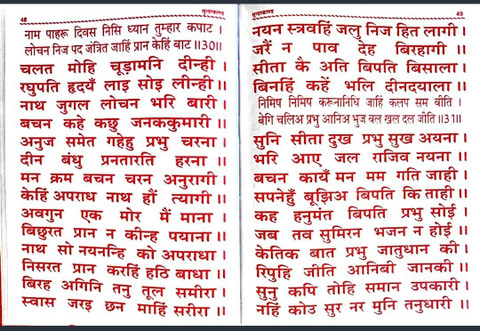 48
सुन्दरकाण्ड
नाम पाहरू दिवस निसि ध्यान तुम्हार कपाट ।
लोचन निज पद जंत्रित जाहिं प्रान केहिं बाट ॥30॥
चलत मोहि चूड़ामनि दीन्ही ।
रघुपति हृदयँ लाइ सोइ लीन्ही ।
नाथ जुगल लोचन भरि बारी ।
बचन कहे कछु जनककुमारी ।
अनुज समेत गहेहु प्रभु चरना ।
दीन बंधु प्रनतारति हरना ।
मन क्रम बचन चरन अनुरागी ।
केहिं अपराध नाथ हौं त्यागी ।
अवगुन एक मोर मैं माना ।
बिछुरत प्रान न कीन्ह पयाना ।
नाथ सो नयनन्हि को अपराधा ।
निसरत प्रान करहिं हठि बाधा ।
बिरह अगिनि तनु तूल समीरा ।
स्वास जरइ छन माहिं सरीरा ।
सुन्दरकाण्ड
49
नयन स्त्रवहिं जलु निज हित लागी ।
जरैं न पाव देह बिरहागी ।
सीता कै अति बिपति बिसाला ।
बिनहिं कहें भलि दीनदयाला ।
निमिष निमिष करूनानिधि जाहिं कलप सम बीति ।
बेगि चलिअ प्रभु आनिअ भुज बल खल दल जीति ॥31॥
सुनि सीता दुख प्रभु सुख अयना ।
भरि आए जल राजिव नयना ।
बचन कायँ मन मम गति जाही ।
सपनेहुँ बूझिअ बिपति कि ताही ।
कह हनुमंत बिपति प्रभु सोई ।
जब तव सुमिरन भजन न होई ।
केतिक बात प्रभु जातुधान की ।
रिपुहि जीति आनिबी जानकी ।
सुनु कपि तोहि समान उपकारी ।
नहिं कोउ सुर नर मुनि तनुधारी ।